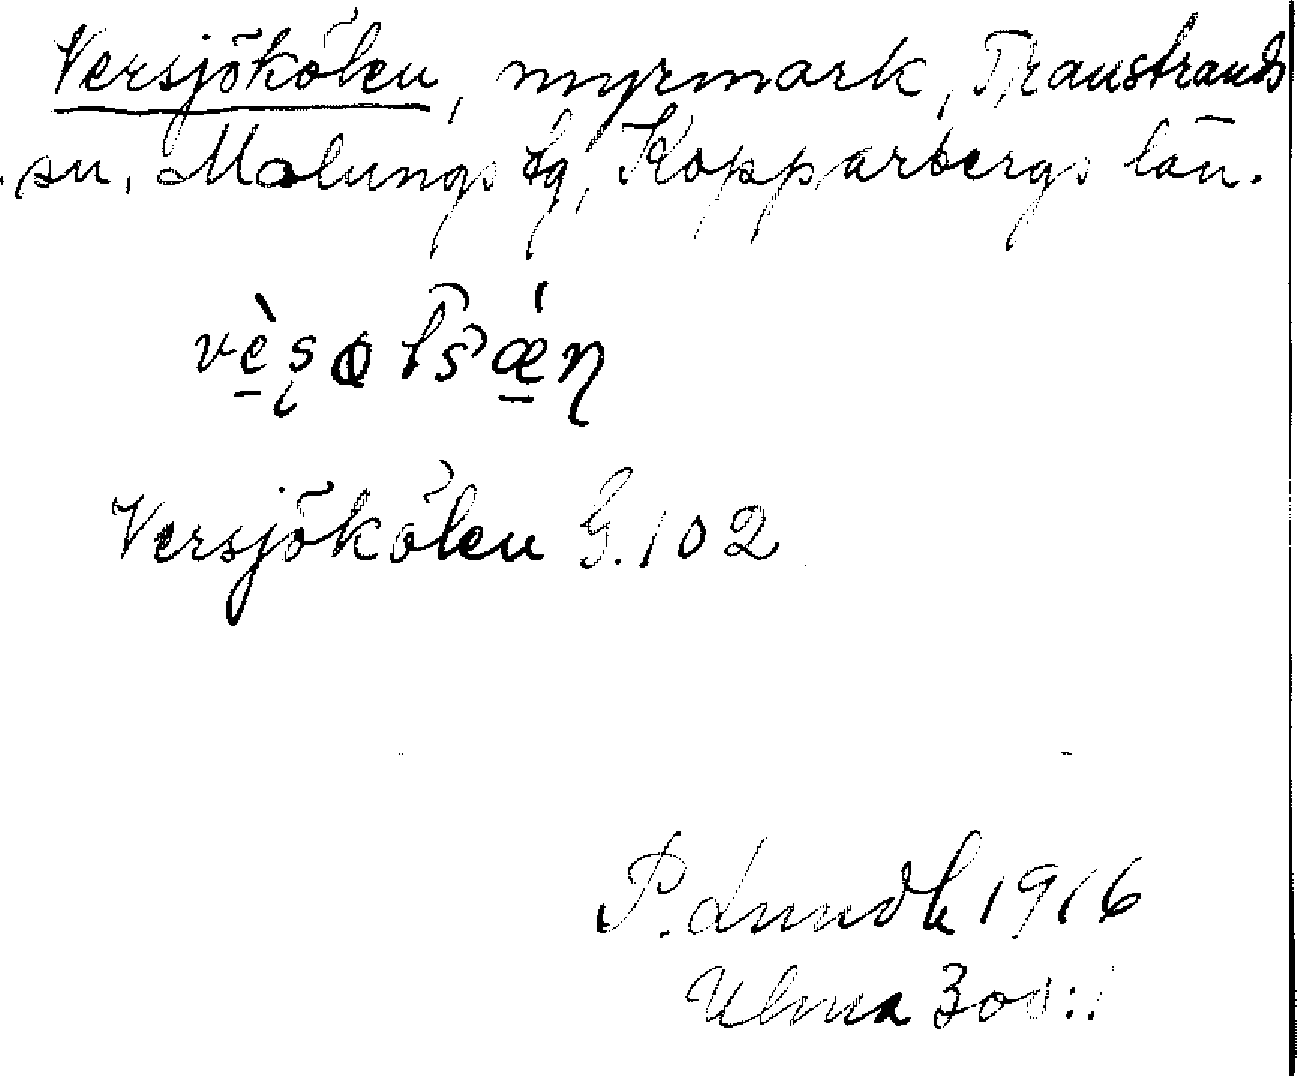 Versjökölen, myrmark, Transtrands
sn, Malungs tg, Kopparbergs län.
Versjökölen G. 102
P. Lindk 1916
Ulma 300:1